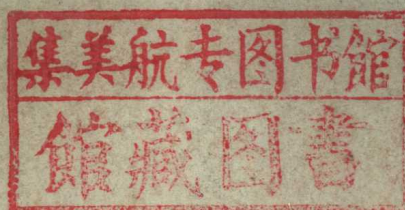 集美航专图书馆
館藏图書